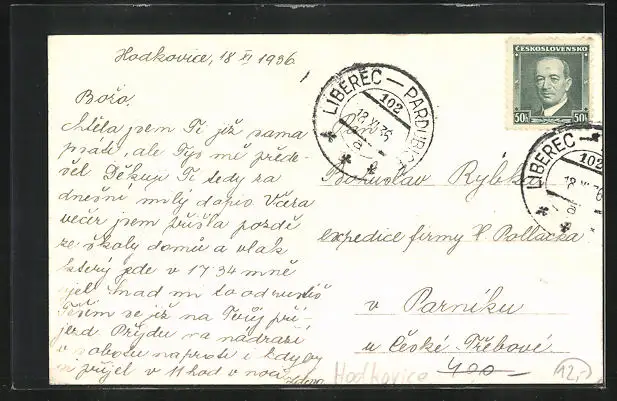 Hodkovice, 18 XI 1936
Bořo.
Chtěla jsem Ti již sama
psáti, ale Tys mě přede-
šel Děkuji Ti tedy za
dnešní milý dopis Včera
večer jsem přišla pozdě
ze školy domů a vlak
který jede v 17 34 mně
ujel Snad mi to odpustíš
Těším se již na Tvůj pří-
jezd. Přijdu na nádraží
v sobotu naproti i kdyby
přijel v 11 hod v noci
Zdena
ČESKOSLOVENSKO
50h 50h
LIBEREC — PARDUBICE
102
18 XI 36
LIBEREC —
102
18 XI 36
Pan
Bohuslav
expedice firmy P. Pollacka
v Parníku
u České Třebové
400
Hodkovice
12,-